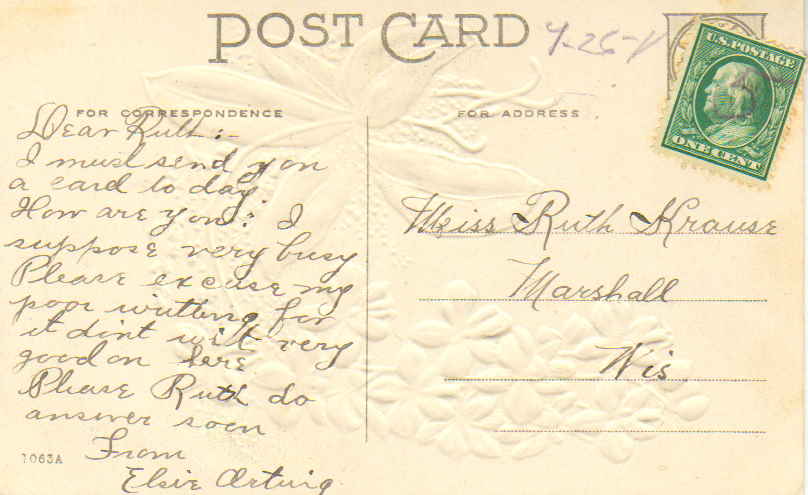 POST CARD
FOR CORRESPONDENCE
FOR ADDRESS
U.S. POSTAGE
ONE CENT
Dear Ruth:-
I must send you
a card to day.
How are you? I
suppose very busy
Please excuse my
poor writting for
it dint writ very
good on here.
Please Ruth do
answer soon
From
Elsie Artwig
1063A
Miss Ruth Krause
Marshall
Wis.